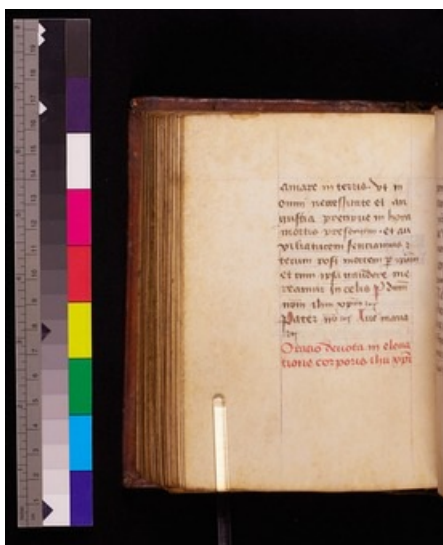 amare in terris. Vt in
omni necessitate et an
gustia precipue in hora
mortis presentem et au
xiliatricem sentiamus
terum post mortem p ipam
et cum ipsa gaudere me
reamur in celis p dnm
nrm ihm xpm
Pater nr Aue maria
Oratio deuota in eleua
tionis corporis ihu xpi